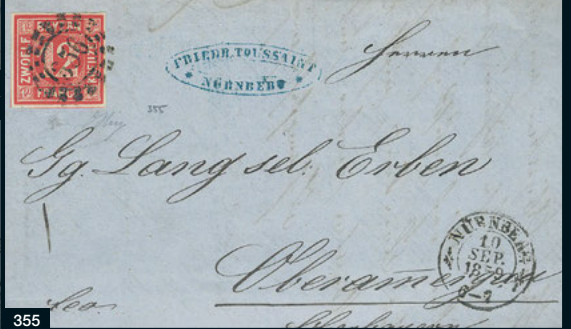 ZWOELF
BAYERN
12
FRIEDR. TOUSSAINT
NÜRNBERG
Herren
355
Gg. Lang sel. Erben
NÜRNBERG
10
SEP.
1859
6-7
Oberamergau
fco.
355